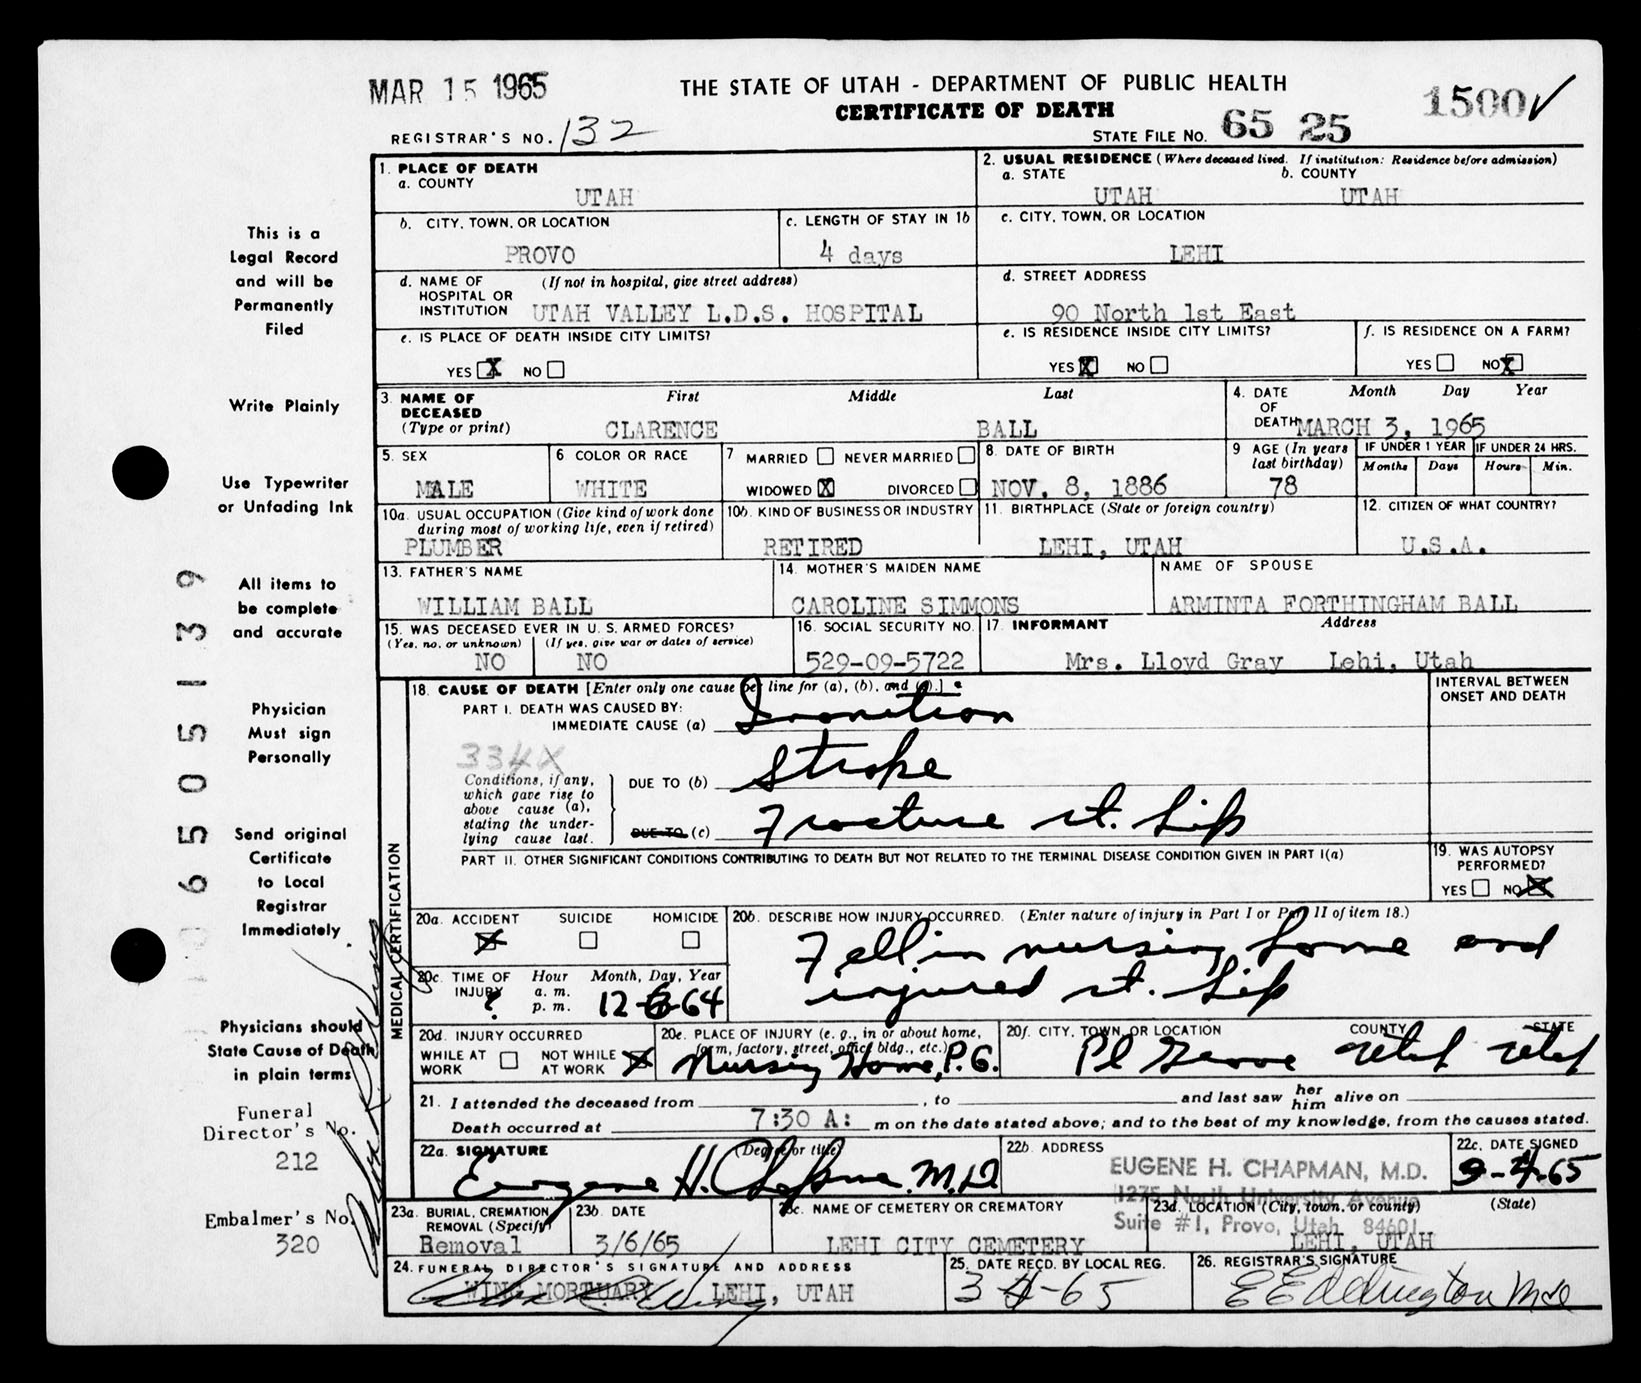 MAR 15 1965
THE STATE OF UTAH - DEPARTMENT OF PUBLIC HEALTH
CERTIFICATE OF DEATH
1500✓
REGISTRAR'S NO. 132
STATE FILE NO. 65 25
This is a
Legal Record
and will be
Permanently
Filed
Write Plainly
Use Typewriter
or Unfading Ink
All items to
be complete
and accurate
Physician
Must sign
Personally
Send original
Certificate
to Local
Registrar
Immediately
Physicians should
State Cause of Death
in plain terms
Funeral
Director's No.
212
Embalmer's No.
320
6505139
1. PLACE OF DEATH
a. COUNTY
UTAH
2. USUAL RESIDENCE (Where deceased lived. If institution: Residence before admission)
a. STATE b. COUNTY
UTAH UTAH
b. CITY, TOWN, OR LOCATION
PROVO
c. LENGTH OF STAY IN 1b
4 days
c. CITY, TOWN, OR LOCATION
LEHI
d. NAME OF HOSPITAL OR INSTITUTION (If not in hospital, give street address)
UTAH VALLEY L.D.S. HOSPITAL
d. STREET ADDRESS
90 North 1st East
e. IS PLACE OF DEATH INSIDE CITY LIMITS?
YES X NO
e. IS RESIDENCE INSIDE CITY LIMITS?
YES X NO
f. IS RESIDENCE ON A FARM?
YES NO X
3. NAME OF DECEASED (Type or print) First Middle Last
CLARENCE BALL
4. DATE OF DEATH Month Day Year
MARCH 3, 1965
5. SEX
MALE
6 COLOR OR RACE
WHITE
7 MARRIED NEVER MARRIED
WIDOWED X DIVORCED
8. DATE OF BIRTH
NOV. 8, 1886
9 AGE (In years last birthday)
78
IF UNDER 1 YEAR IF UNDER 24 HRS.
Months Days Hours Min.
10a. USUAL OCCUPATION (Give kind of work done during most of working life, even if retired)
PLUMBER
10b. KIND OF BUSINESS OR INDUSTRY
RETIRED
11. BIRTHPLACE (State or foreign country)
LEHI, UTAH
12. CITIZEN OF WHAT COUNTRY?
U.S.A.
13. FATHER'S NAME
WILLIAM BALL
14. MOTHER'S MAIDEN NAME
CAROLINE SIMMONS
NAME OF SPOUSE
ARMINTA FORTHINGHAM BALL
15. WAS DECEASED EVER IN U. S. ARMED FORCES?
(Yes, no, or unknown) (If yes, give war or dates of service)
NO NO
16. SOCIAL SECURITY NO.
529-09-5722
17. INFORMANT Address
Mrs. Lloyd Gray Lehi, Utah
MEDICAL CERTIFICATION
18. CAUSE OF DEATH [Enter only one cause per line for (a), (b), and (c).]
INTERVAL BETWEEN ONSET AND DEATH
PART I. DEATH WAS CAUSED BY:
IMMEDIATE CAUSE (a) Inanition
334X
Conditions, if any, which gave rise to above cause (a), stating the underlying cause last.
DUE TO (b) Stroke
DUE TO (c) Fracture rt. hip
PART II. OTHER SIGNIFICANT CONDITIONS CONTRIBUTING TO DEATH BUT NOT RELATED TO THE TERMINAL DISEASE CONDITION GIVEN IN PART I(a)
19. WAS AUTOPSY PERFORMED?
YES NO X
20a. ACCIDENT SUICIDE HOMICIDE
X
20b. DESCRIBE HOW INJURY OCCURRED. (Enter nature of injury in Part I or Part II of item 18.)
Fell in nursing home and
injured rt. hip
20c. TIME OF INJURY Hour Month, Day, Year
? a. m. p. m. 12-6-64
20d. INJURY OCCURRED
WHILE AT WORK NOT WHILE AT WORK X
20e. PLACE OF INJURY (e. g., in or about home, farm, factory, street, office bldg., etc.)
Nursing Home, P.G.
20f. CITY, TOWN, OR LOCATION COUNTY STATE
Pl Grove Utah Utah
21. I attended the deceased from , to and last saw her him alive on
Death occurred at 7:30 A: m on the date stated above; and to the best of my knowledge, from the causes stated.
22a. SIGNATURE (Degree or title)
Eugene H. Chapman M.D.
22b. ADDRESS
EUGENE H. CHAPMAN, M.D.
1275 North University Avenue
Suite #1, Provo, Utah 84601
22c. DATE SIGNED
3-4-65
23a. BURIAL, CREMATION REMOVAL (Specify)
Removal
23b. DATE
3/6/65
23c. NAME OF CEMETERY OR CREMATORY
LEHI CITY CEMETERY
23d. LOCATION (City, town, or county) (State)
LEHI, UTAH
24. FUNERAL DIRECTOR'S SIGNATURE AND ADDRESS
WING MORTUARY LEHI, UTAH
25. DATE RECD. BY LOCAL REG.
3-4-65
26. REGISTRAR'S SIGNATURE
E E Eddington